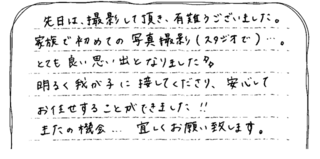 先日は、撮影して頂き、有難うございました。
家族で初めての写真撮影(スタジオで)…。
とても良い思い出となりました。
明るく我が子に接してくださり、安心して
お任せすることができました!!
またの機会… 宜しくお願い致します。